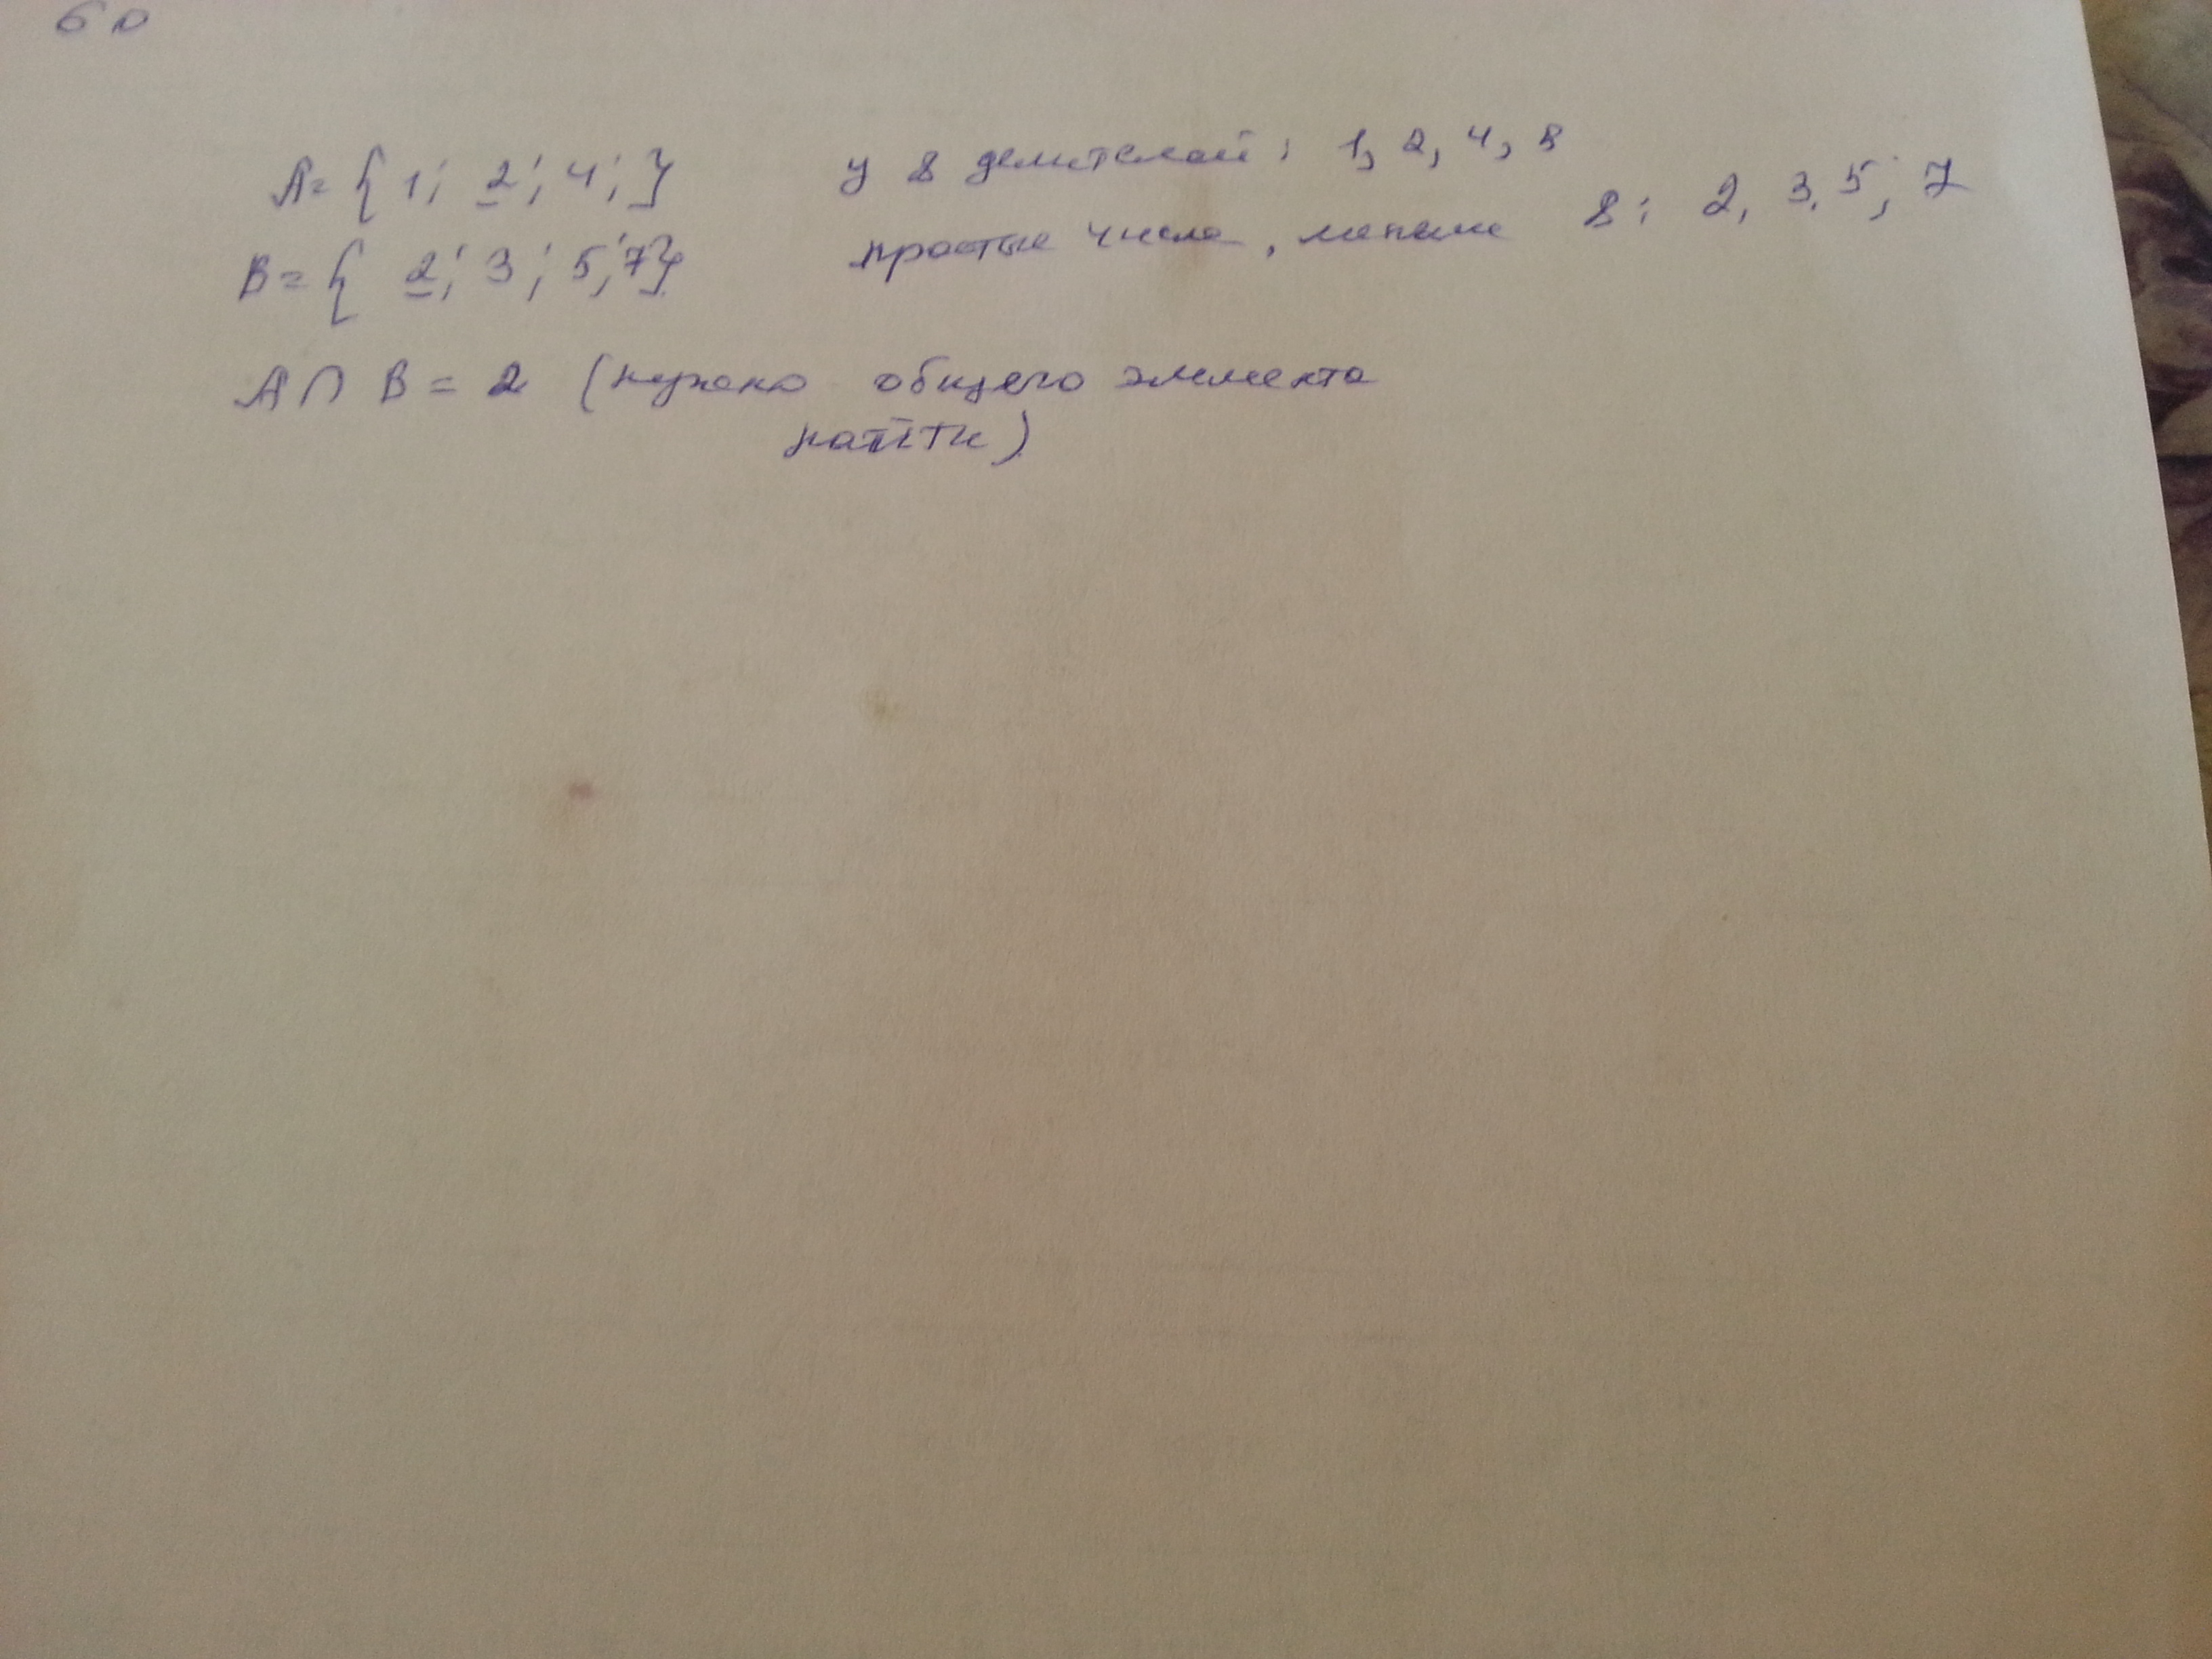 60
A = { 1; 2; 4; } у 8 делителей: 1, 2, 4, 8
B = { 2; 3; 5; 7} простые числа, меньше 8: 2, 3, 5, 7
A ∩ B = 2 (нужно общего элемента
найти)